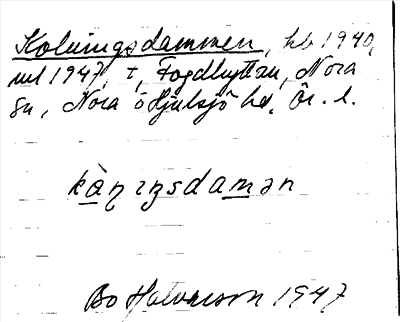 Kolningsdammen, kb 1940,
ml 1947, t, Fogdhyttan, Nora
sn, Nora o Hjulsjö hd, Ör. l.
kàṉıŋsdamən
Bo Halvarson 1947